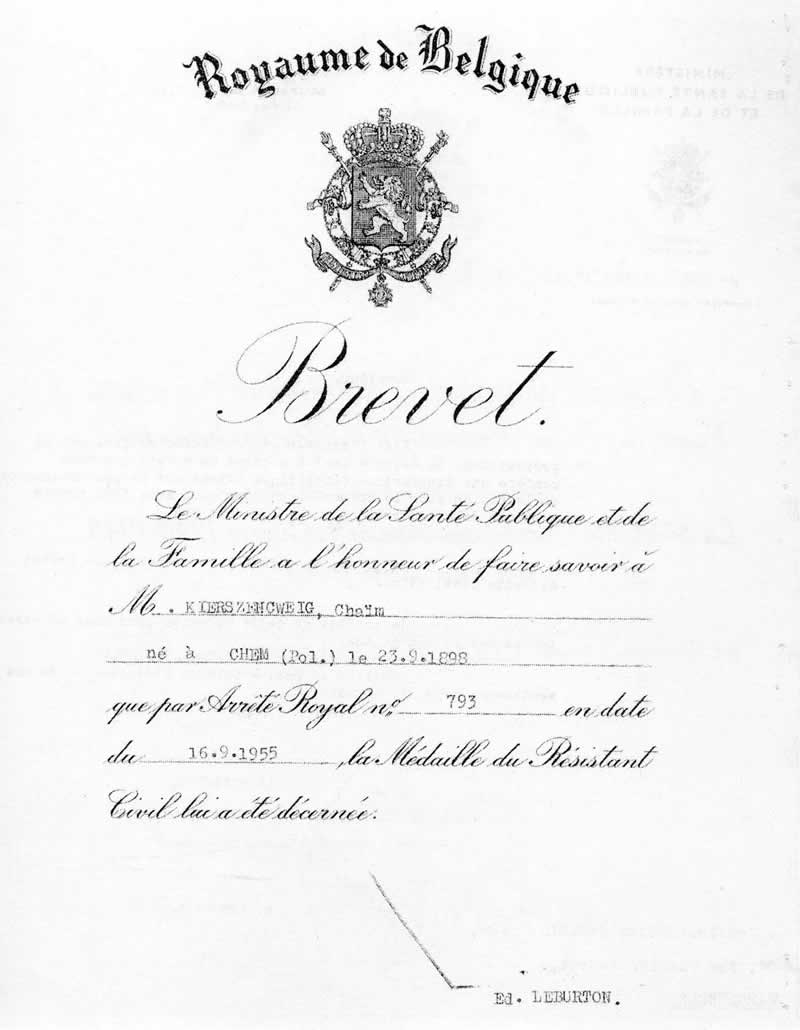 Royaume de Belgique
Brevet.
Le Ministre de la Santé Publique et de
la Famille a l'honneur de faire savoir à
M. KIERSZENCWEIG, Chaïm
né à CHEM (Pol.) le 23.9.1898
que par Arrêté Royal nº 793 en date
du 16.9.1955, la Médaille du Résistant
Civil lui a été décernée.
Ed. LEBURTON.